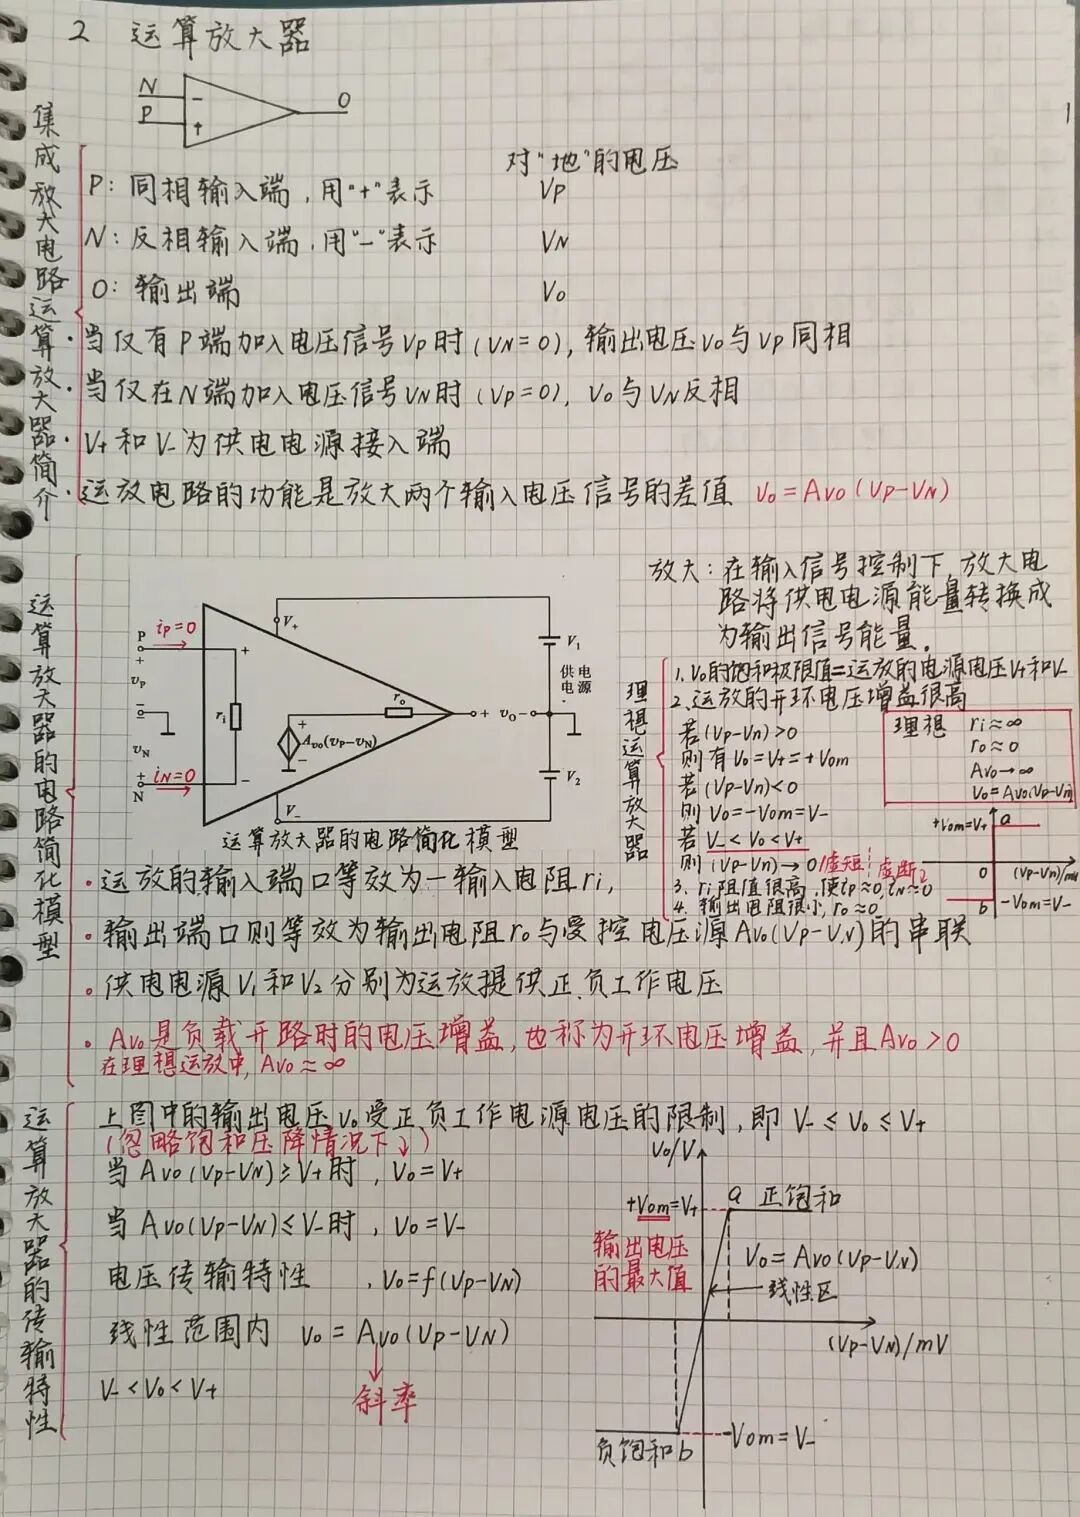 2 运算放大器
N
P
O
-
+
1
集成放大电路运算放大器简介
对“地”的电压
P：同相输入端，用“+”表示 VP
N：反相输入端，用“-”表示 VN
O：输出端 Vo
·当仅有P端加入电压信号VP时(VN=0)，输出电压Vo与VP同相
·当仅在N端加入电压信号VN时(VP=0)，Vo与VN反相
·V+和V-为供电电源接入端
·运放电路的功能是放大两个输入电压信号的差值 Vo=Avo(VP-VN)
运算放大器的电路简化模型
P
+
υP
-
υN
+
N
iP=0
iN=0
+
ri
-
V+
V-
ro
+
Avo(υP-υN)
-
+ υO -
V1
供电 电源
V2
运算放大器的电路简化模型
放大：在输入信号控制下，放大电
路将供电电源能量转换成
为输出信号能量。
理想运算放大器
1.Vo的饱和极限值=运放的电源电压V+和V-
2.运放的开环电压增益很高
若(Vp-Vn)>0
则有Vo=V+=+Vom
若(Vp-Vn)<0
则 Vo=-Vom=V-
若 V-<Vo<V+
则(Vp-Vn)→0 虚短 虚断
3. ri阻值很高，使ip≈0,iN≈0
4. 输出电阻很小，ro≈0
理想 ri≈∞
ro≈0
Avo→∞
Vo=Avo(Vp-Vn)
+Vom=V+ a
0 (Vp-Vn)/mV
b -Vom=V-
·运放的输入端口等效为一输入电阻ri，
·输出端口则等效为输出电阻ro与受控电压源Avo(VP-VN)的串联
·供电电源V1和V2分别为运放提供正负工作电压
·Avo是负载开路时的电压增益，也称为开环电压增益，并且Avo>0
在理想运放中，Avo≈∞
运算放大器的传输特性
上图中的输出电压vo受正负工作电源电压的限制，即 V-≤Vo≤V+
(忽略饱和压降情况下↓)
当Avo(VP-VN)≥V+时，Vo=V+
当Avo(VP-VN)≤V-时，Vo=V-
电压传输特性 ，Vo=f(VP-VN)
线性范围内 Vo=Avo(VP-VN)
斜率
V-<Vo<V+
Vo/V
+Vom=V+
a 正饱和
输出电压
的最大值
Vo=Avo(VP-VN)
线性区
(VP-VN)/mV
负饱和b
-Vom=V-